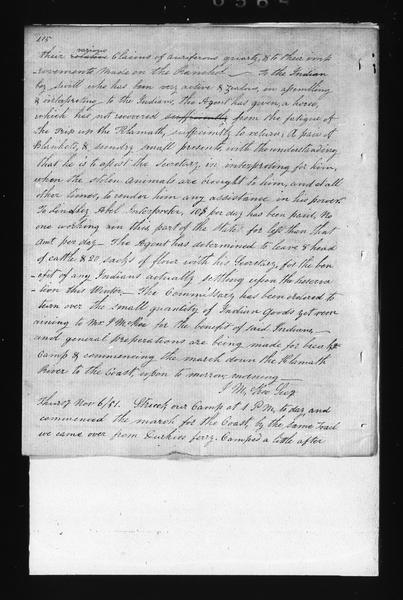 115
various
their relative Claims of auriferous quartz, & to their imp
rovements made on the Ranchos. — To the Indian
boy, Swill who has been very active & zealous, in assembling
& interpreting to the Indians, the Agent has given, a horse,
which has not recovered sufficiently from the fatigue of
the trip up the Klamath, sufficiently to return; A pair of
Blankets, & sundry small presents, with the understanding
that he is to assist the Secretary, in interpreting for him,
when the stolen animals are brought to him, and at all
other times, to render him any assistance in his power.
To Lindsley Abel Interpreter, 10$ per day has been paid, No
one working in this part of the State for less than that
amt per day — The Agent has determined to leave 8 head
of cattle & 20 sacks of flour with his Secretary, for the ben
efit of any Indians actually settling upon the reserva
tion this Winter. — The Commissary has been ordered to
turn over the small quantity of Indian Goods yet rem
aining to Mr J McKee for the benefit of said Indians,
and general preparations are being made for breaking
Camp & commencing the march down the Klamath
River to the Coast, upon to morrow morning
J McKee Secy
Thurs'y Nov 6/51. Struck our Camp at 1 P.M. to day and
commenced the march for the Coast, by the same trail
we came over from Durkees ferry. Camped a little after